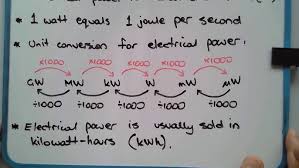 * 1 watt equals 1 joule per second
* Unit conversion for electrical power:
x1000 x1000 x1000 x1000 x1000
GW MW kW W mW μW
÷1000 ÷1000 ÷1000 ÷1000 ÷1000
* Electrical power is usually sold in
kilowatt-hours (kWh).